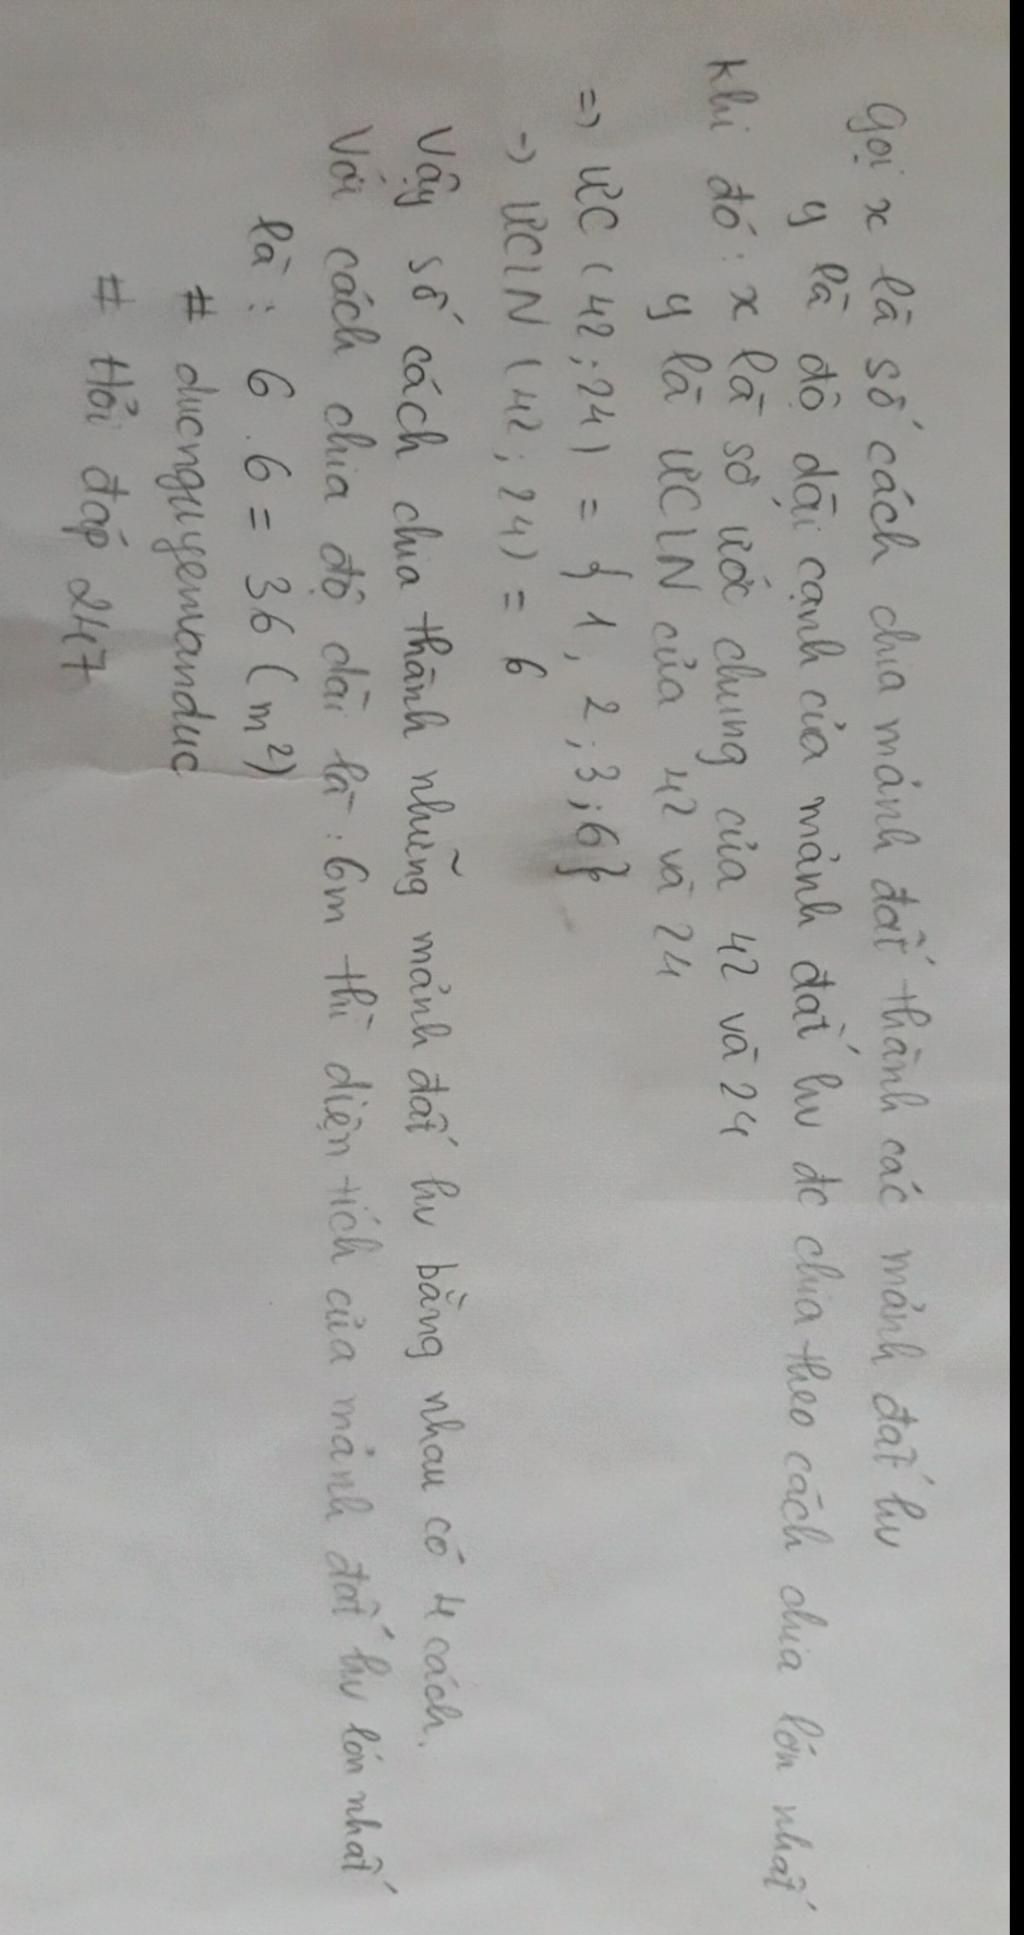 Gọi x là số cách chia mảnh đất thành các mảnh đất hv
y là độ dài cạnh của mảnh đất hv đc chia theo cách chia lớn nhất
Khi đó: x là số ước chung của 42 và 24
y là ƯCLN của 42 và 24
=> ƯC (42; 24) = {1, 2; 3; 6}
-> ƯCLN (42; 24) = 6
Vậy số cách chia thành những mảnh đất hv bằng nhau có 4 cách.
Với cách chia độ dài là: 6m thì diện tích của mảnh đất hv lớn nhất
là: 6.6 = 36 (m²)
# ducnguyenvanduc
# Hỏi đáp 247